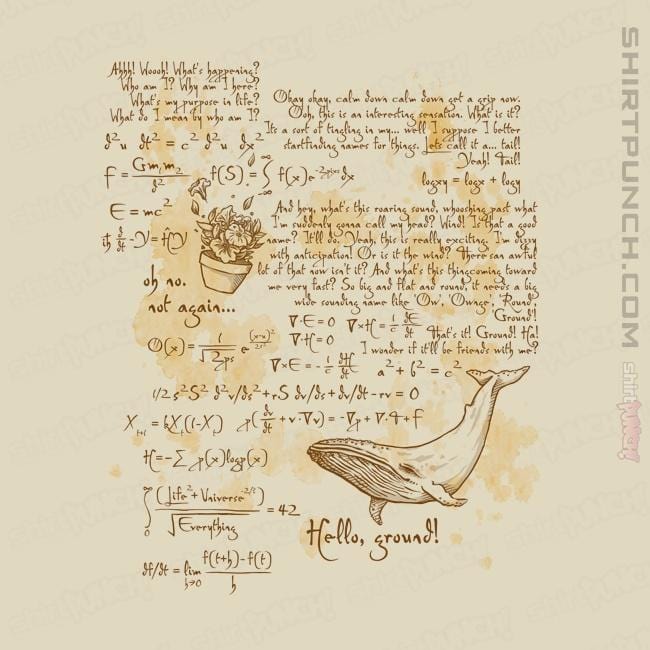 Ahhh! Woooh! What's happening?
Who am I? Why am I here?
What's my purpose in life?
What do I mean by who am I?
Okay okay, calm down calm down get a grip now.
Ooh, this is an interesting sensation. What is it?
Its a sort of tingling in my... well I suppose I better
start finding names for things. Lets call it a... tail!
Yeah! Tail!
d²u dt² = c² d²u dx²
F = Gm₁m₂ / d²
f(S) = ∫ f(x)e dx
logxy = logx + logy
E = mc²
And hey, what's this roaring sound, whooshing past what
I'm suddenly gonna call my head? Wind! Is that a good
name? It'll do. Yeah, this is really exciting. I'm dizzy
with anticipation! Or is it the wind? There san awful
lot of that now isn't it? And what's this thingcoming toward
me very fast? So big and flat and round, it needs a big
wide sounding name like 'Ow', 'Ownge', 'Round',
'Ground'!
That's it! Ground! Ha!
I wonder if it'll be friends with me?
oh no.
not again...
∇·E = 0 ∇×H = 1/c dE/dt
∇·H = 0
∇×E = -1/c dH/dt
a² + b² = c²
1/2 s²S² d²v/ds² + rS dv/ds + dv/dt - rv = 0
p(dv/dt + v·∇v) = -∇p + ∇·T + f
H = -∑ p(x)logp(x)
∫ (Life² + Universe) / √Everything = 42
Hello, ground!
df/dt = lim h→0 f(t+h)-f(t) / h
SHIRTPUNCH.COM
shirt PUNCH!